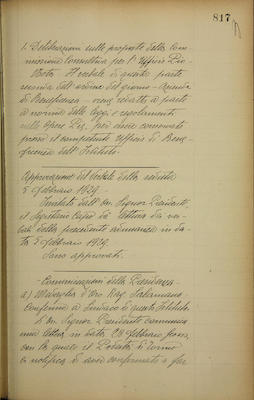 817
1. Deliberazioni sulle proposte della Com-
missione Consultiva per l'Ufficio
Il verbale di questa parte
dell'ordine del giorno
di Beneficenza - viene redatto a parte
a norma delle leggi e regolamenti
sulle Opere Pie,
presso il competente Ufficio di Bene-
ficenza dell'Istituto.
Approvazione del verbale della seduta
5 febbraio 1929.
dall'On. Signor Presidente,
il Segretario Capo dà lettura dei ver-
bali della precedente adunanza in da-
ta 5 febbraio 1929.
Sono approvati.
Comunicazioni della Presidenza
a) Medaglia d'Oro Rag.
Conferma a Sindaco di questo Istituto.
L'On. Signor Presidente comunica
una lettera in data 28 febbraio
con la quale il Podestà di Torino
notifica di aver confermato a far